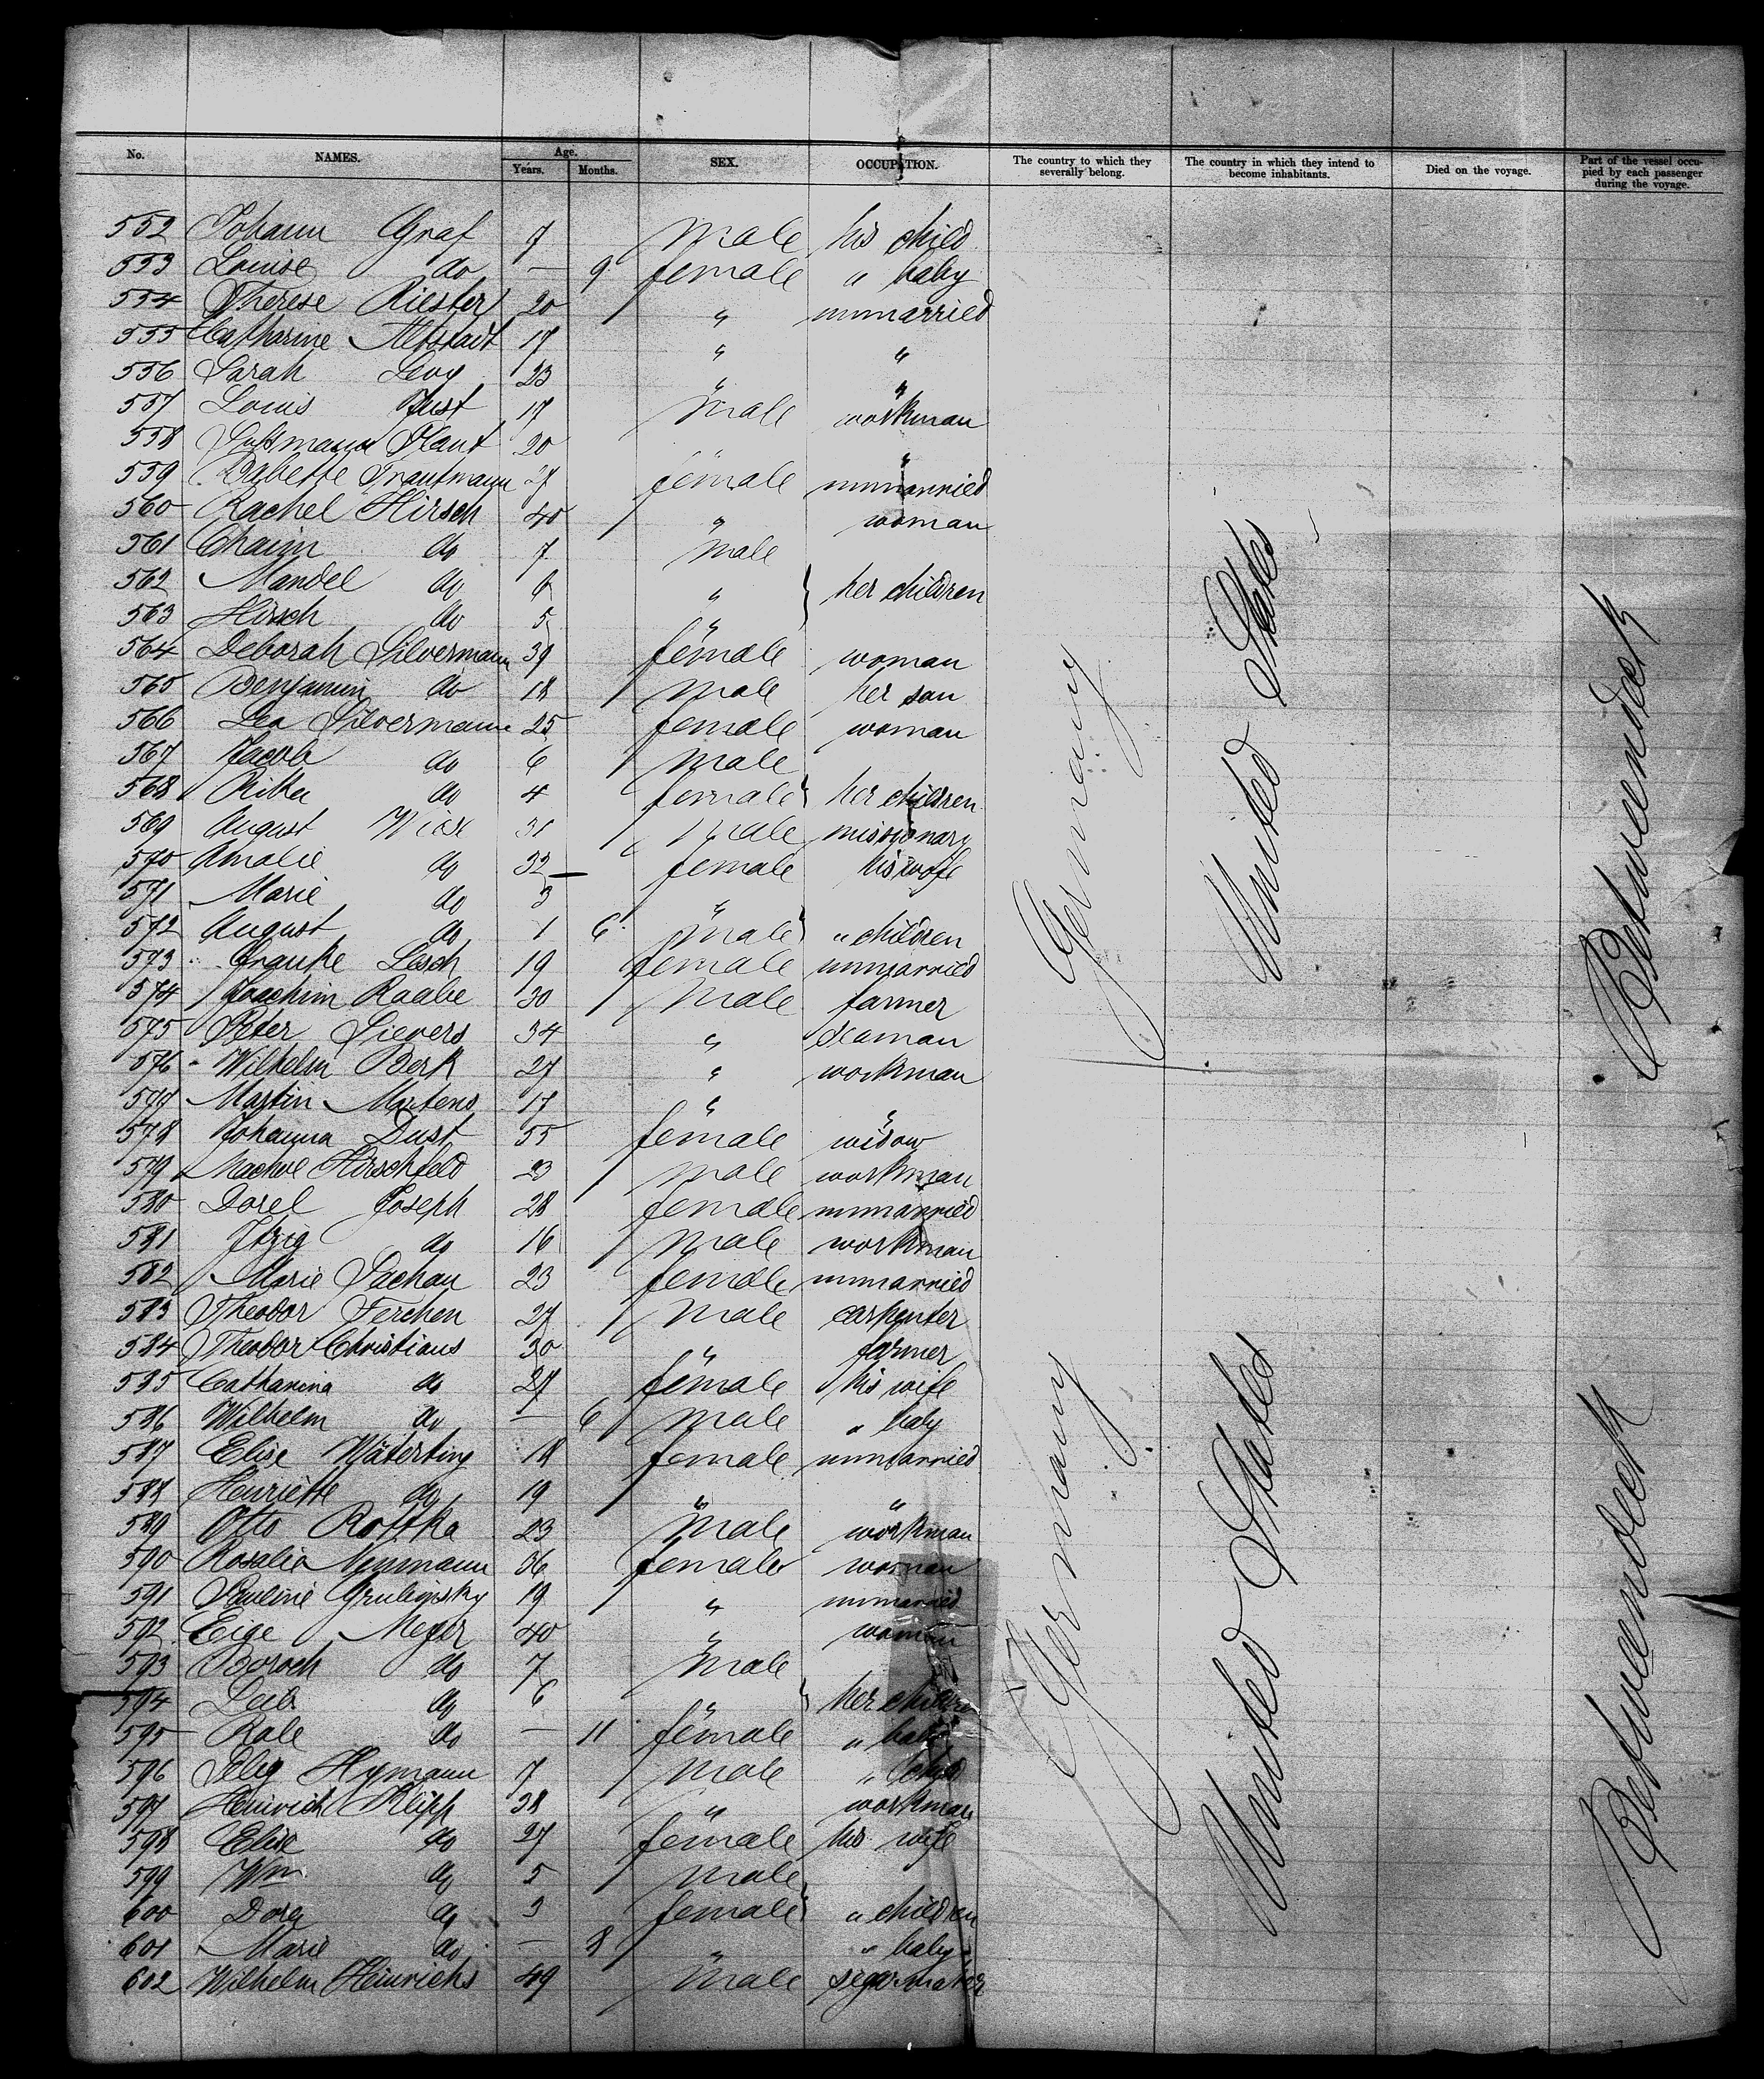 No. NAMES. Age. Years. Months. SEX. OCCUPATION. The country to which they severally belong. The country in which they intend to become inhabitants. Died on the voyage. Part of the vessel occupied by each passenger during the voyage.
552 Johann Graf 7 male his child
553 Louise do — 9 female " baby
554 Therese Riester 20 " unmarried
555 Catharine Altstadt 17 " "
556 Sarah Levy 23 " "
557 Louis Just 17 male workman
558 Plaut 20 "
559 Babette Trautmann 27 female unmarried
560 Rachel Hirsch 40 " woman
561 Chaim do 7 male
562 Mandel do 6 " her children
563 Hirsch do 5 "
564 Deborah Silvermann 39 female woman
565 Benjamin do 18 male her son
566 Lea Silvermann 25 female woman
567 Jacob do 6 male
568 Rika do 4 female her children
569 August 31 male missionary
570 Amalie do 32 female his wife
571 Marie do 3 "
572 August do 1 6 male " children
573 Frauke Lesch 19 female unmarried
574 Joachim Raabe 30 male farmer
575 Peter Sievers 34 " seaman
576 Wilhelm Berk 27 " workman
577 Martin Martens 17 " "
578 Johanna Dust 55 female widow
579 Hirschfeld 23 male workman
580 Dorel Joseph 28 female unmarried
581 Itzig do 16 male workman
582 Marie Sachau 23 female unmarried
583 Theodor Ferchen 27 male carpenter
584 Theodor Christians 30 " farmer
585 Catharina do 27 female his wife
586 Wilhelm do — 6 male " baby
587 Elise Wäterting 18 female unmarried
588 Henriette do 19 " "
589 Otto Rottka 23 male workman
590 Rosalie Neumann 36 female woman
591 Pauline 19 " unmarried
592 Meyer 40 " woman
593 Boroch do 7 male
594 Leib do 6 " her children
595 Rale do — 11 female " baby
596 Selig Hymann 7 male " child
597 Heinrich Klipp 38 " workman
598 Elise do 27 female his wife
599 Wm do 5 male
600 Dora do 3 female " children
601 Marie do — 8 " " baby
602 Wilhelm Heinrichs 49 male segarmaker
Germany
United States
Betweendeck
Germany
United States
Betweendeck